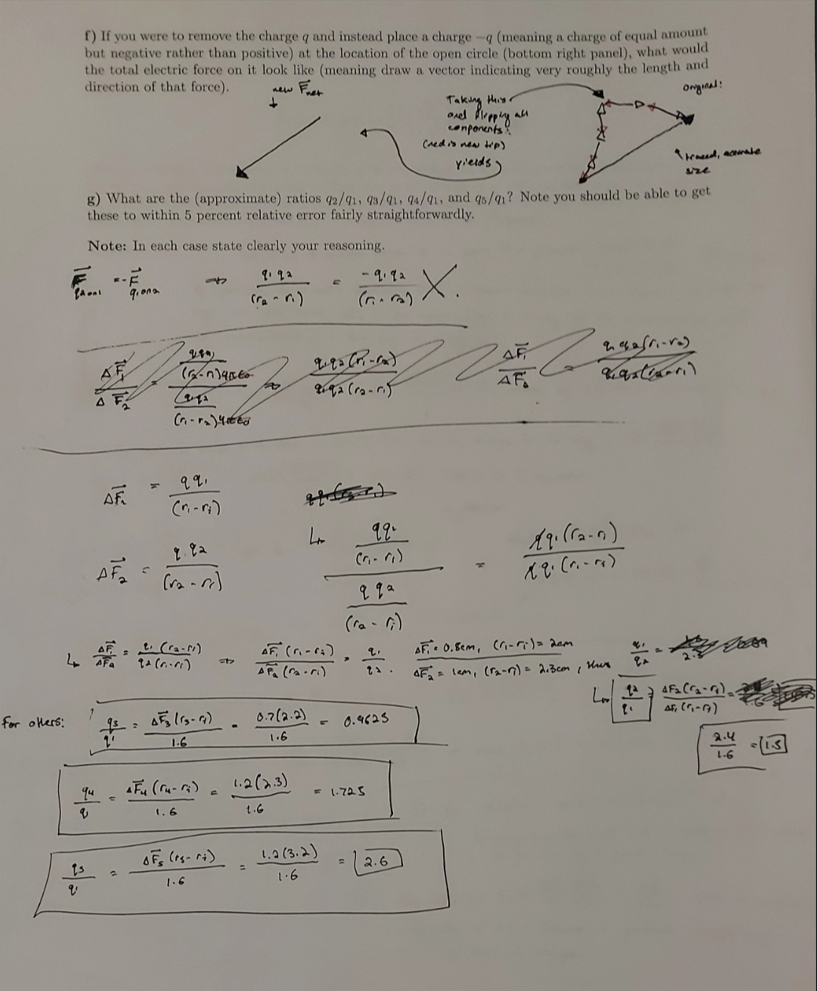 f) If you were to remove the charge q and instead place a charge −q (meaning a charge of equal amount
but negative rather than positive) at the location of the open circle (bottom right panel), what would
the total electric force on it look like (meaning draw a vector indicating very roughly the length and
direction of that force).
new F⃗net
Taking this
and flipping all
components:
(red is new trip)
yields
original:
traced, accurate
size
g) What are the (approximate) ratios q2/q1, q3/q1, q4/q1, and q5/q1? Note you should be able to get
these to within 5 percent relative error fairly straightforwardly.
Note: In each case state clearly your reasoning.
F⃗q2on1 = -F⃗q1on2 ⇒ q1q2/(r2-r1) = -q1q2/(r1-r2) X.
ΔF⃗1 = qq1/(r1-ri)
ΔF⃗2 = q q2/(r2-ri)
↳ (qq1/(r1-ri))/(q q2/(r2-ri))
↳ ΔF⃗1/ΔF⃗2 = q1(r2-ri)/q2(r1-ri) ⇒ ΔF⃗1(r1-ri)/ΔF⃗2(r2-ri) = q1/q2.
ΔF⃗1 = 0.8cm, (r1-ri) = 2cm
ΔF⃗2 = 1cm, (r2-ri) = 2.3cm, thus q1/q2 =
↳ q2/q1 = ΔF2(r2-ri)/ΔF1(r1-ri) =
2.4/1.6 = 1.5
For others:
q3/q1 = ΔF⃗3(r3-ri)/1.6 = 0.7(2.2)/1.6 = 0.9625
q4/q1 = ΔF⃗4(r4-ri)/1.6 = 1.2(2.3)/1.6 = 1.725
q5/q1 = ΔF⃗5(r5-ri)/1.6 = 1.2(3.2)/1.6 = 2.6